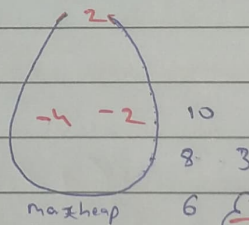 2
-4 -2 10
8 3
maxheap 6